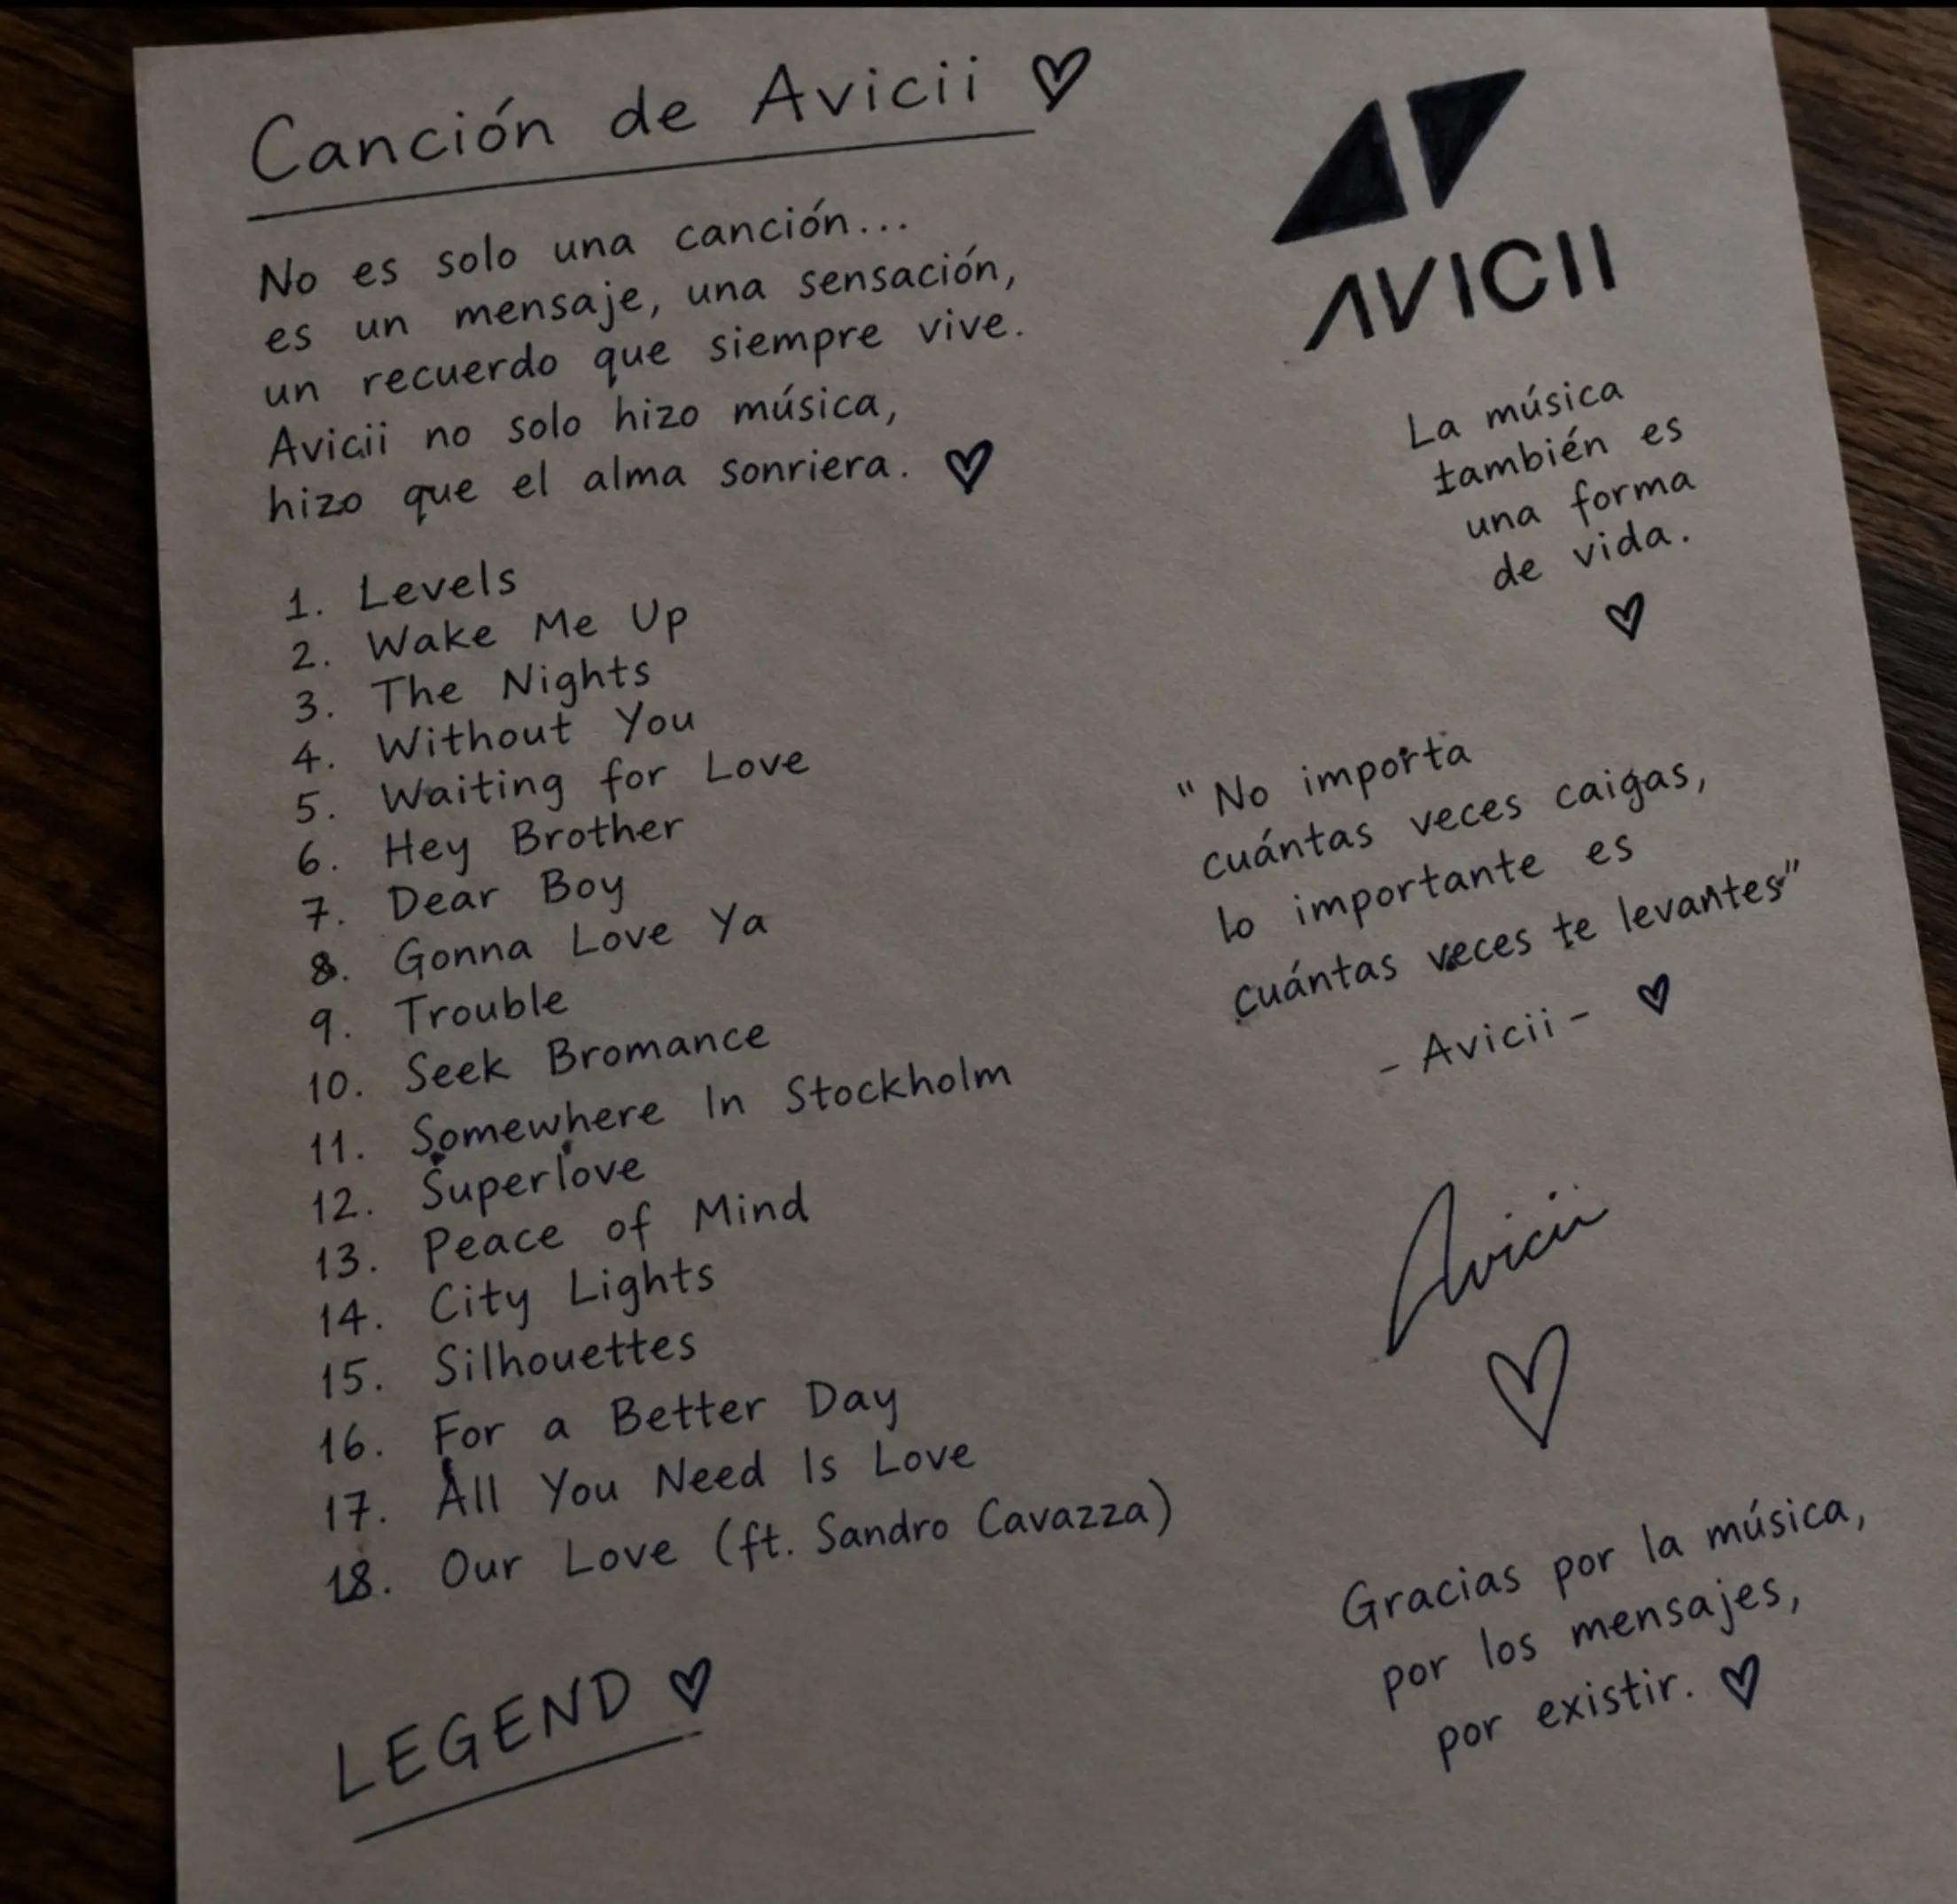 Canción de Avicii ♡
No es solo una canción...
es un mensaje, una sensación,
un recuerdo que siempre vive.
Avicii no solo hizo música,
hizo que el alma sonriera. ♡
1. Levels
2. Wake Me Up
3. The Nights
4. Without You
5. Waiting for Love
6. Hey Brother
7. Dear Boy
8. Gonna Love Ya
9. Trouble
10. Seek Bromance
11. Somewhere In Stockholm
12. Superlove
13. Peace of Mind
14. City Lights
15. Silhouettes
16. For a Better Day
17. All You Need Is Love
18. Our Love (ft. Sandro Cavazza)
LEGEND ♡
AVICII
La música
también es
una forma
de vida.
♡
"No importa
cuántas veces caigas,
lo importante es
cuántas veces te levantes"
- Avicii - ♡
Avicii
♡
Gracias por la música,
por los mensajes,
por existir. ♡